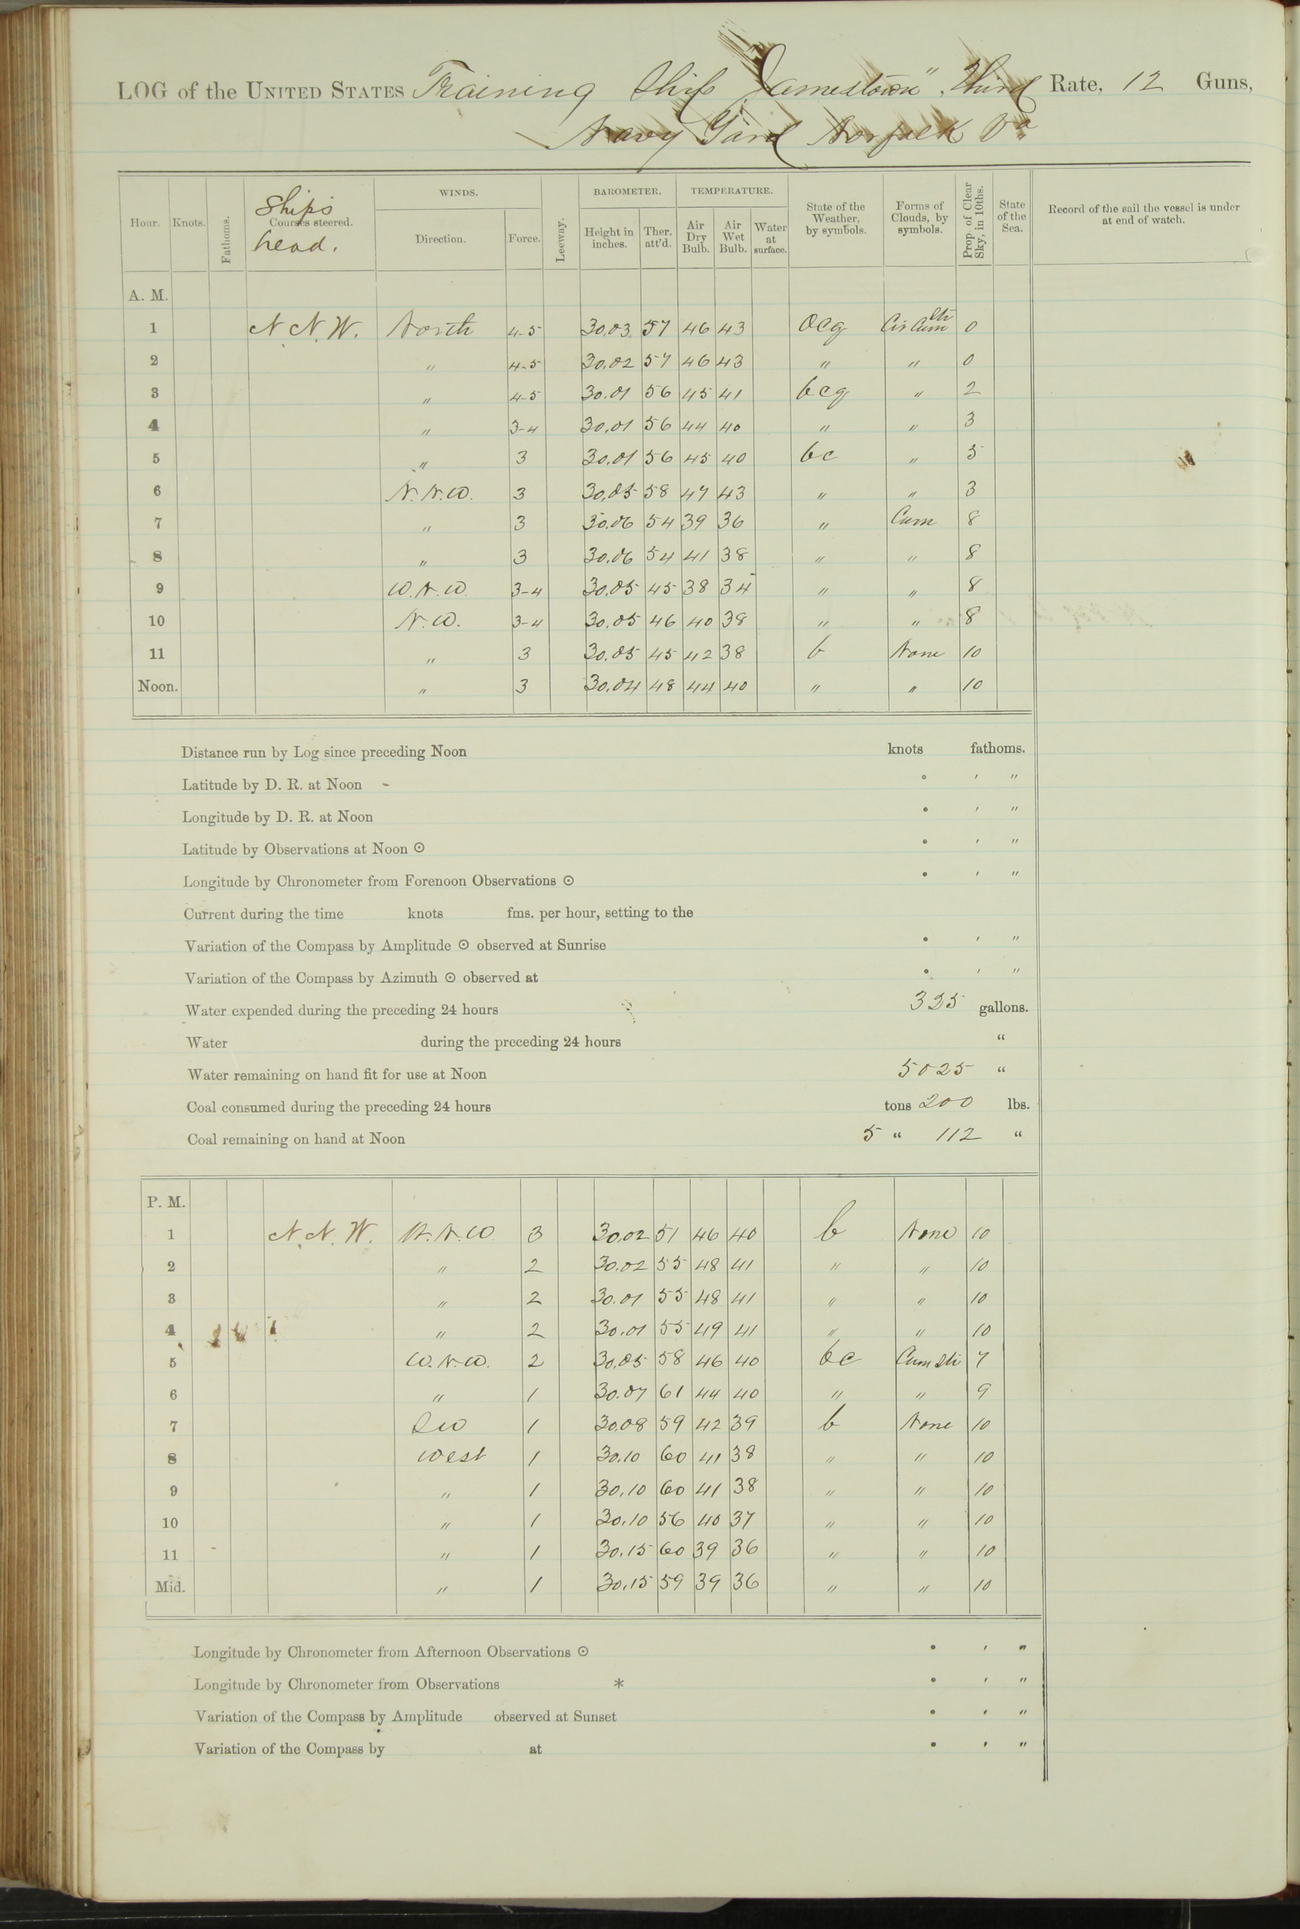 LOG of the UNITED STATES Training Ship "Jamestown", Third Rate, 12 Guns,
Navy Yard Norfolk Va
Hour. Knots. Fathoms. Ships Courses steered. head. WINDS. Direction. Force. Leeway. BAROMETER. Height in inches. Ther. att'd. TEMPERATURE. Air Dry Bulb. Air Wet Bulb. Water at surface. State of the Weather, by symbols. Forms of Clouds, by symbols. Prop. of Clear Sky, in 10ths. State of the Sea. Record of the sail the vessel is under at end of watch.
A. M.
1 N. N. W. North 4-5 30.03 57 46 43 ocg Cir Cum Str 0
2 " 4-5 30.02 57 46 43 " " 0
3 " 4-5 30.01 56 45 41 bcg " 2
4 " 3-4 30.01 56 44 40 " " 3
5 " 3 30.01 56 45 40 bc " 5
6 N.N.W. 3 30.05 58 47 43 " " 3
7 " 3 30.06 54 39 36 " Cum 8
8 " 3 30.06 54 41 38 " " 8
9 W.N.W. 3-4 30.05 45 38 34 " " 8
10 N.W. 3-4 30.05 46 40 38 " " 8
11 " 3 30.05 45 42 38 b None 10
Noon. " 3 30.04 48 44 40 " " 10
Distance run by Log since preceding Noon knots fathoms.
Latitude by D. R. at Noon ° ' "
Longitude by D. R. at Noon ° ' "
Latitude by Observations at Noon ⊙ ° ' "
Longitude by Chronometer from Forenoon Observations ⊙ ° ' "
Current during the time knots fms. per hour, setting to the
Variation of the Compass by Amplitude ⊙ observed at Sunrise ° ' "
Variation of the Compass by Azimuth ⊙ observed at ° ' "
Water expended during the preceding 24 hours 325 gallons.
Water during the preceding 24 hours "
Water remaining on hand fit for use at Noon 5025 "
Coal consumed during the preceding 24 hours tons 200 lbs.
Coal remaining on hand at Noon 5 " 112 "
P. M.
1 N. N. W. N.N.W. 3 30.02 51 46 40 b None 10
2 " 2 30.02 55 48 41 " " 10
3 " 2 30.01 55 48 41 " " 10
4 " 2 30.01 55 49 41 " " 10
5 W.N.W. 2 30.05 58 46 40 bc Cum Str 7
6 " 1 30.07 61 44 40 " " 9
7 SW 1 30.08 59 42 39 b None 10
8 West 1 30.10 60 41 38 " " 10
9 " 1 30.10 60 41 38 " " 10
10 " 1 30.10 56 40 37 " " 10
11 " 1 30.15 60 39 36 " " 10
Mid. " 1 30.15 59 39 36 " " 10
Longitude by Chronometer from Afternoon Observations ⊙ ° ' "
Longitude by Chronometer from Observations * ° ' "
Variation of the Compass by Amplitude observed at Sunset ° ' "
Variation of the Compass by at ° ' "